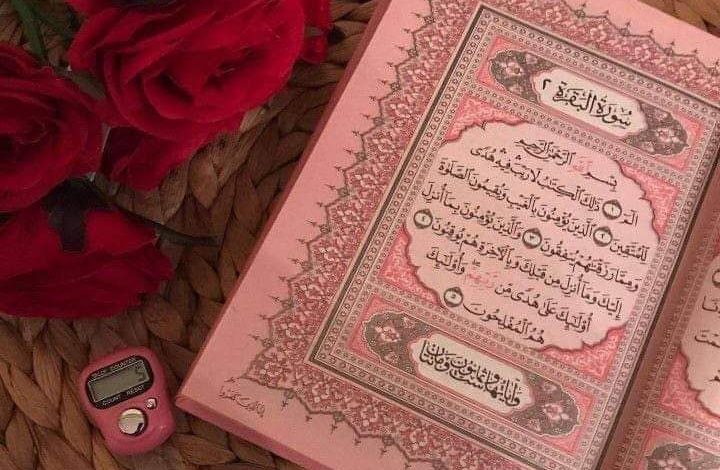 سُورَةُ الْبَقَرَةِ ٢
بِسْمِ اللَّهِ الرَّحْمَٰنِ الرَّحِيمِ
الٓمٓ ١ ذَٰلِكَ الْكِتَٰبُ لَا رَيْبَ فِيهِ هُدًى
لِّلْمُتَّقِينَ ٢ الَّذِينَ يُؤْمِنُونَ بِالْغَيْبِ وَيُقِيمُونَ الصَّلَوٰةَ
وَمِمَّا رَزَقْنَٰهُمْ يُنفِقُونَ ٣ وَالَّذِينَ يُؤْمِنُونَ بِمَا أُنزِلَ
إِلَيْكَ وَمَا أُنزِلَ مِن قَبْلِكَ وَبِالْآخِرَةِ هُمْ يُوقِنُونَ ٤
أُو۟لَٰئِكَ عَلَىٰ هُدًى مِّن رَّبِّهِمْ وَأُو۟لَٰئِكَ
هُمُ الْمُفْلِحُونَ ٥
وَآيَاتُهَا سِتٌّ وَثَمَانُونَ وَمِائَتَانِ
COUNT RESET